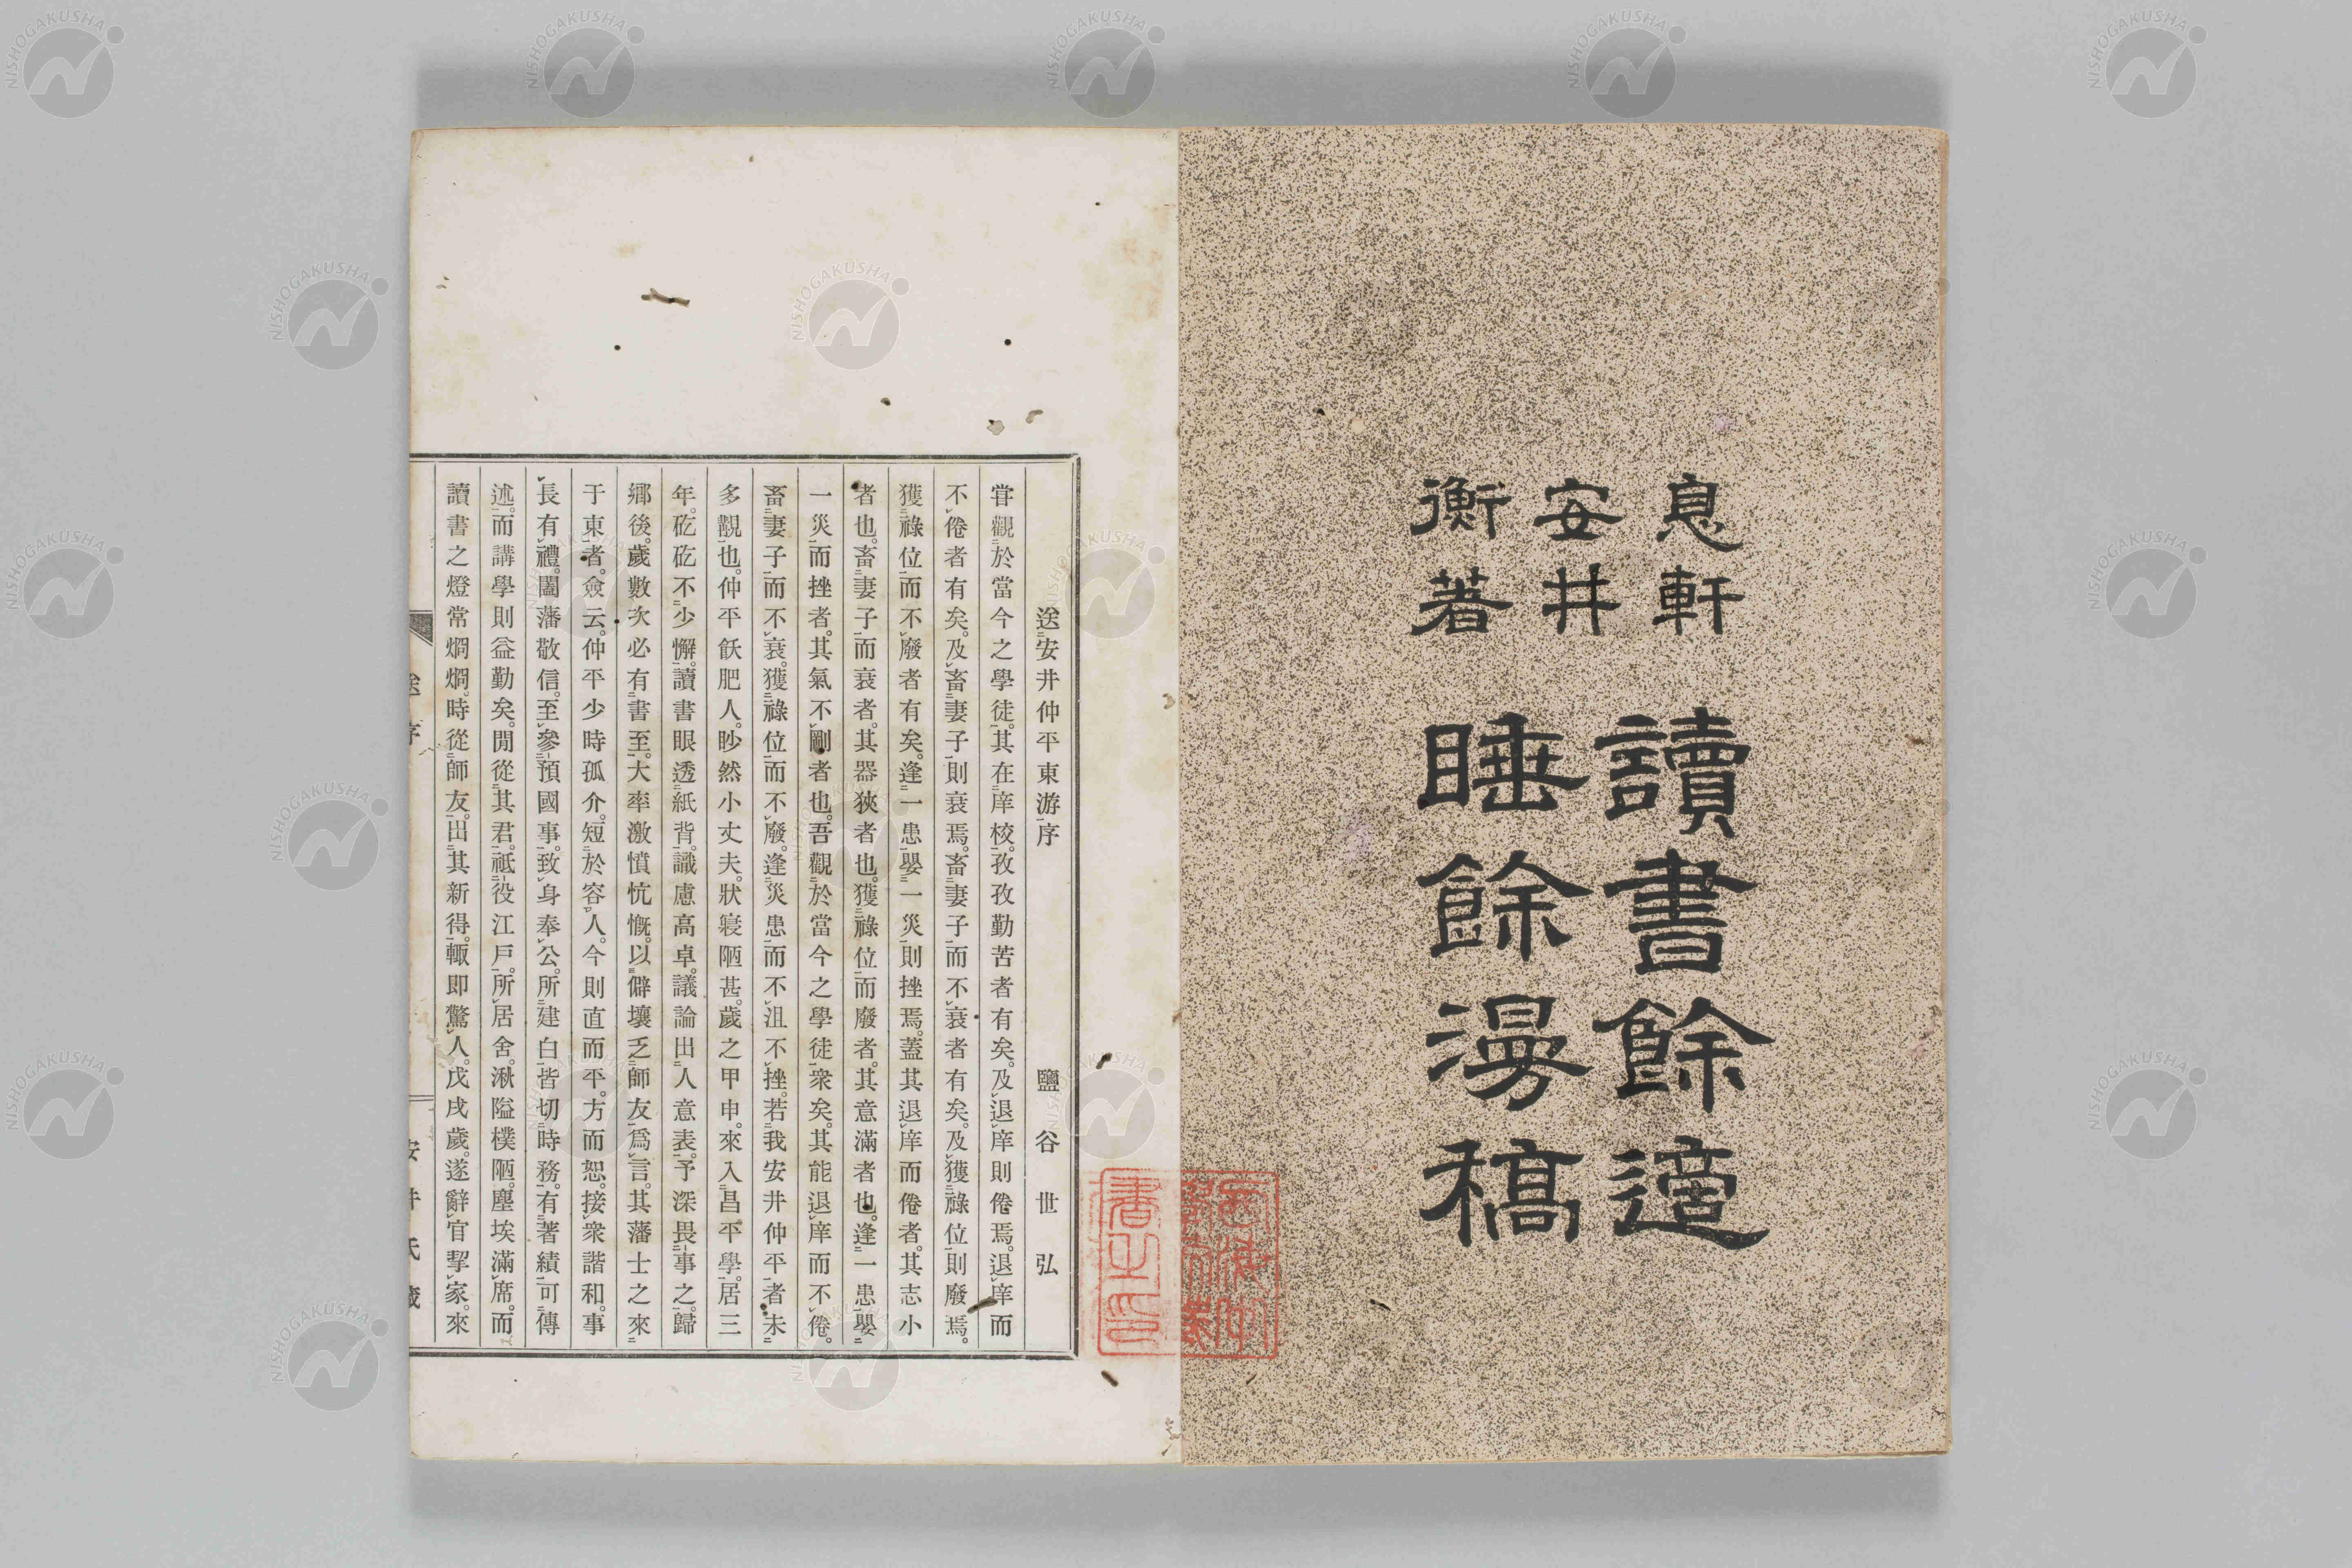 息軒
安井
衡著
讀書餘適
睡餘漫稿
送安井仲平東游序 鹽谷世弘
甞觀於當今之學徒。其在庠校。孜孜勤苦者有矣。及退庠則倦焉。退庠而
不倦者有矣。及畜妻子則衰焉。畜妻子而不衰者有矣。及獲祿位則廢焉。
獲祿位而不廢者有矣。逢一患嬰一災則挫焉。蓋其退庠而倦者。其志小
者也。畜妻子而衰者。其器狹者也。獲祿位而廢者。其意滿者也。逢一患嬰
一災而挫者。其氣不剛者也。吾觀於當今之學徒衆矣。其能退庠而不倦。
畜妻子而不衰。獲祿位而不廢。逢災患而不沮不挫。若我安井仲平者未
多覯也。仲平飫肥人。眇然小丈夫。狀寢陋甚。歲之甲申。來入昌平學。居三
年。矻矻不少懈。讀書眼透紙背。識慮高卓。議論出人意表。予深畏事之。歸
鄉後。歲數次必有書至。大率激憤忼慨。以僻壤乏師友爲言。其藩士之來
于東者。僉云。仲平少時孤介。短於容人。今則直而平。方而恕。接衆諧和。事
長有禮。闔藩敬信。至參預國事。致身奉公。所建白皆切時務。有著績可傳
述。而講學則益勤矣。閒從其君。祗役江戶。所居舍。湫隘樸陋。塵埃滿席。而
讀書之燈常烱烱。時從師友。出其新得。輒即驚人。戊戌歲。遂辭官挈家。來
NISHOGAKUSHA